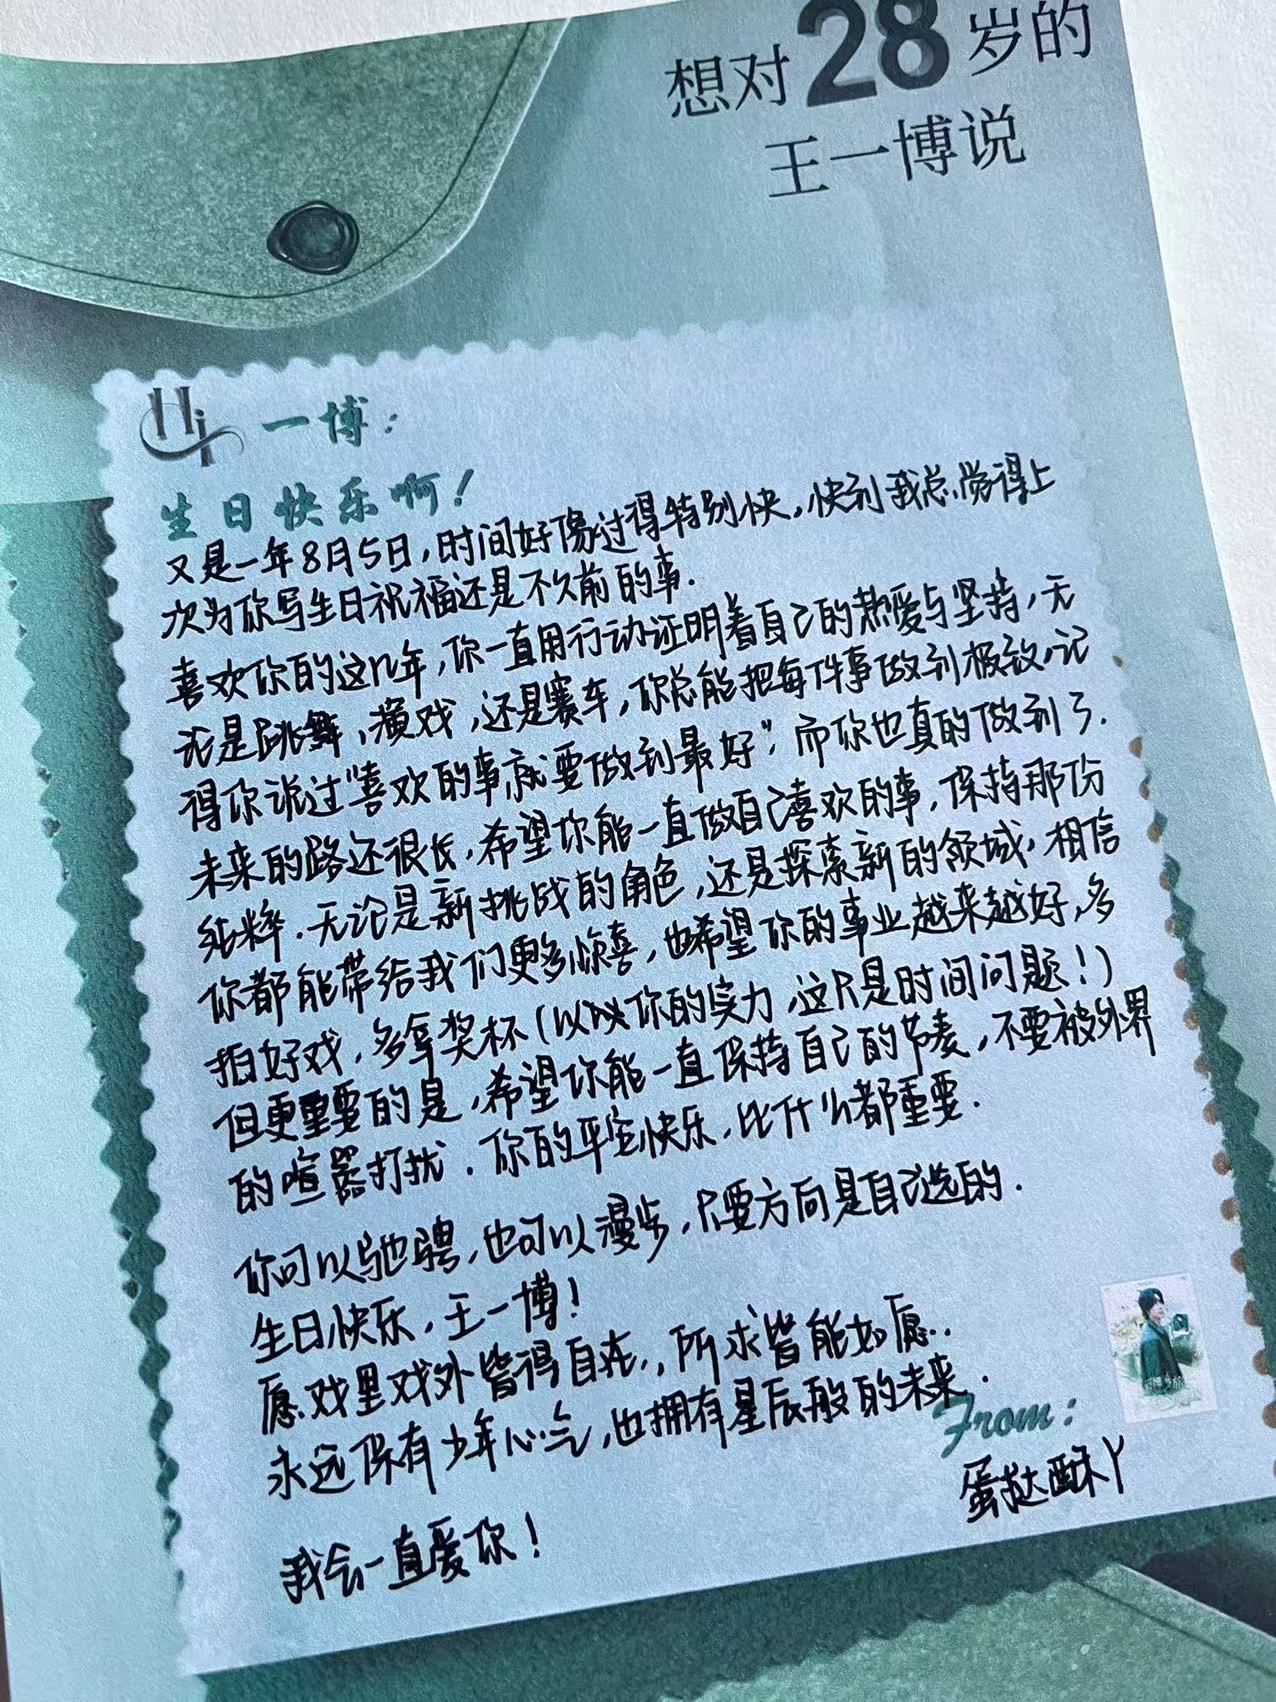 想对28岁的
王一博说
Hi 一博：
生日快乐啊！
又是一年8月5日，时间好像过得特别快，快到我总觉得上
次为你写生日祝福还是不久前的事.
喜欢你的这几年，你一直用行动证明着自己的热爱与坚持，无
论是跳舞、演戏，还是赛车，你总能把每件事做到极致，记
得你说过“喜欢的事就要做到最好”，而你也真的做到了.
未来的路还很长，希望你能一直做自己喜欢的事，保持那份
纯粹.无论是新挑战的角色，还是探索新的领域，相信
你都能带给我们更多惊喜，也希望你的事业越来越好，多
拍好戏，多拿奖杯（以以你的实力，这只是时间问题！）
但更重要的是，希望你能一直保持自己的节奏，不要被外界
的喧嚣打扰.你的平安快乐，比什么都重要.
你可以驰骋，也可以漫步，只要方向是自己选的.
生日快乐，王一博！
愿戏里戏外皆得自在，所求皆能如愿.
永远保有少年心气，也拥有星辰般的未来.
From:
蛋挞酥丫
我会一直爱你！